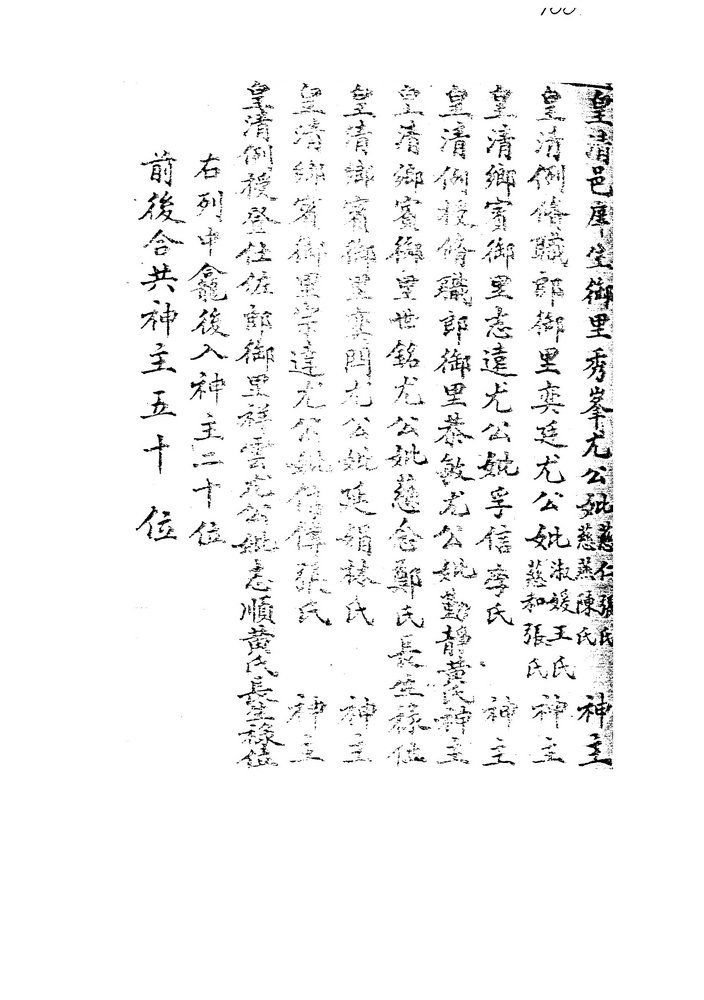 100
皇清邑庠生御里秀峯尤公妣慈仁張氏慈燕陳氏神主
皇清例脩職郎御里奕廷尤公妣淑媛王氏慈和張氏神主
皇清鄉賓御里志遠尤公妣孚信李氏神主
皇清例授脩職郎御里恭敏尤公妣勤靜黃氏神主
皇清鄉賓御里世銘尤公妣慈念鄭氏長生祿位
皇清鄉賓御里奕閗尤公妣廷娟林氏神主
皇清鄉賓御里宗達尤公妣張氏神主
皇清例授登仕佐郎御里祥雲尤公妣志順黃氏長生祿位
右列中龕後入神主二十位
前後合共神主五十位